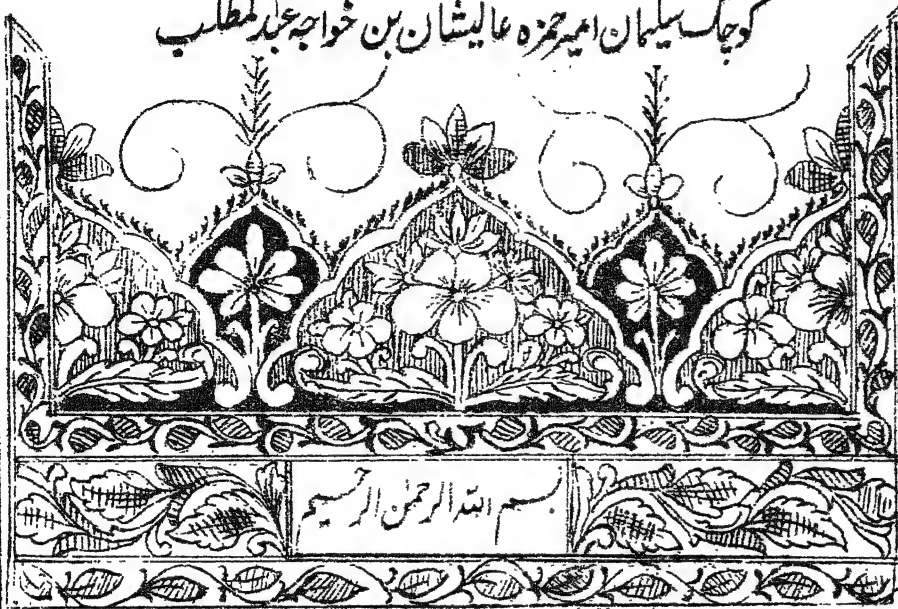 کوچک سلیمان امیر حمزہ عالیشان بن خواجہ عبدالمطلب
بسم اللہ الرحمٰن الرحیم